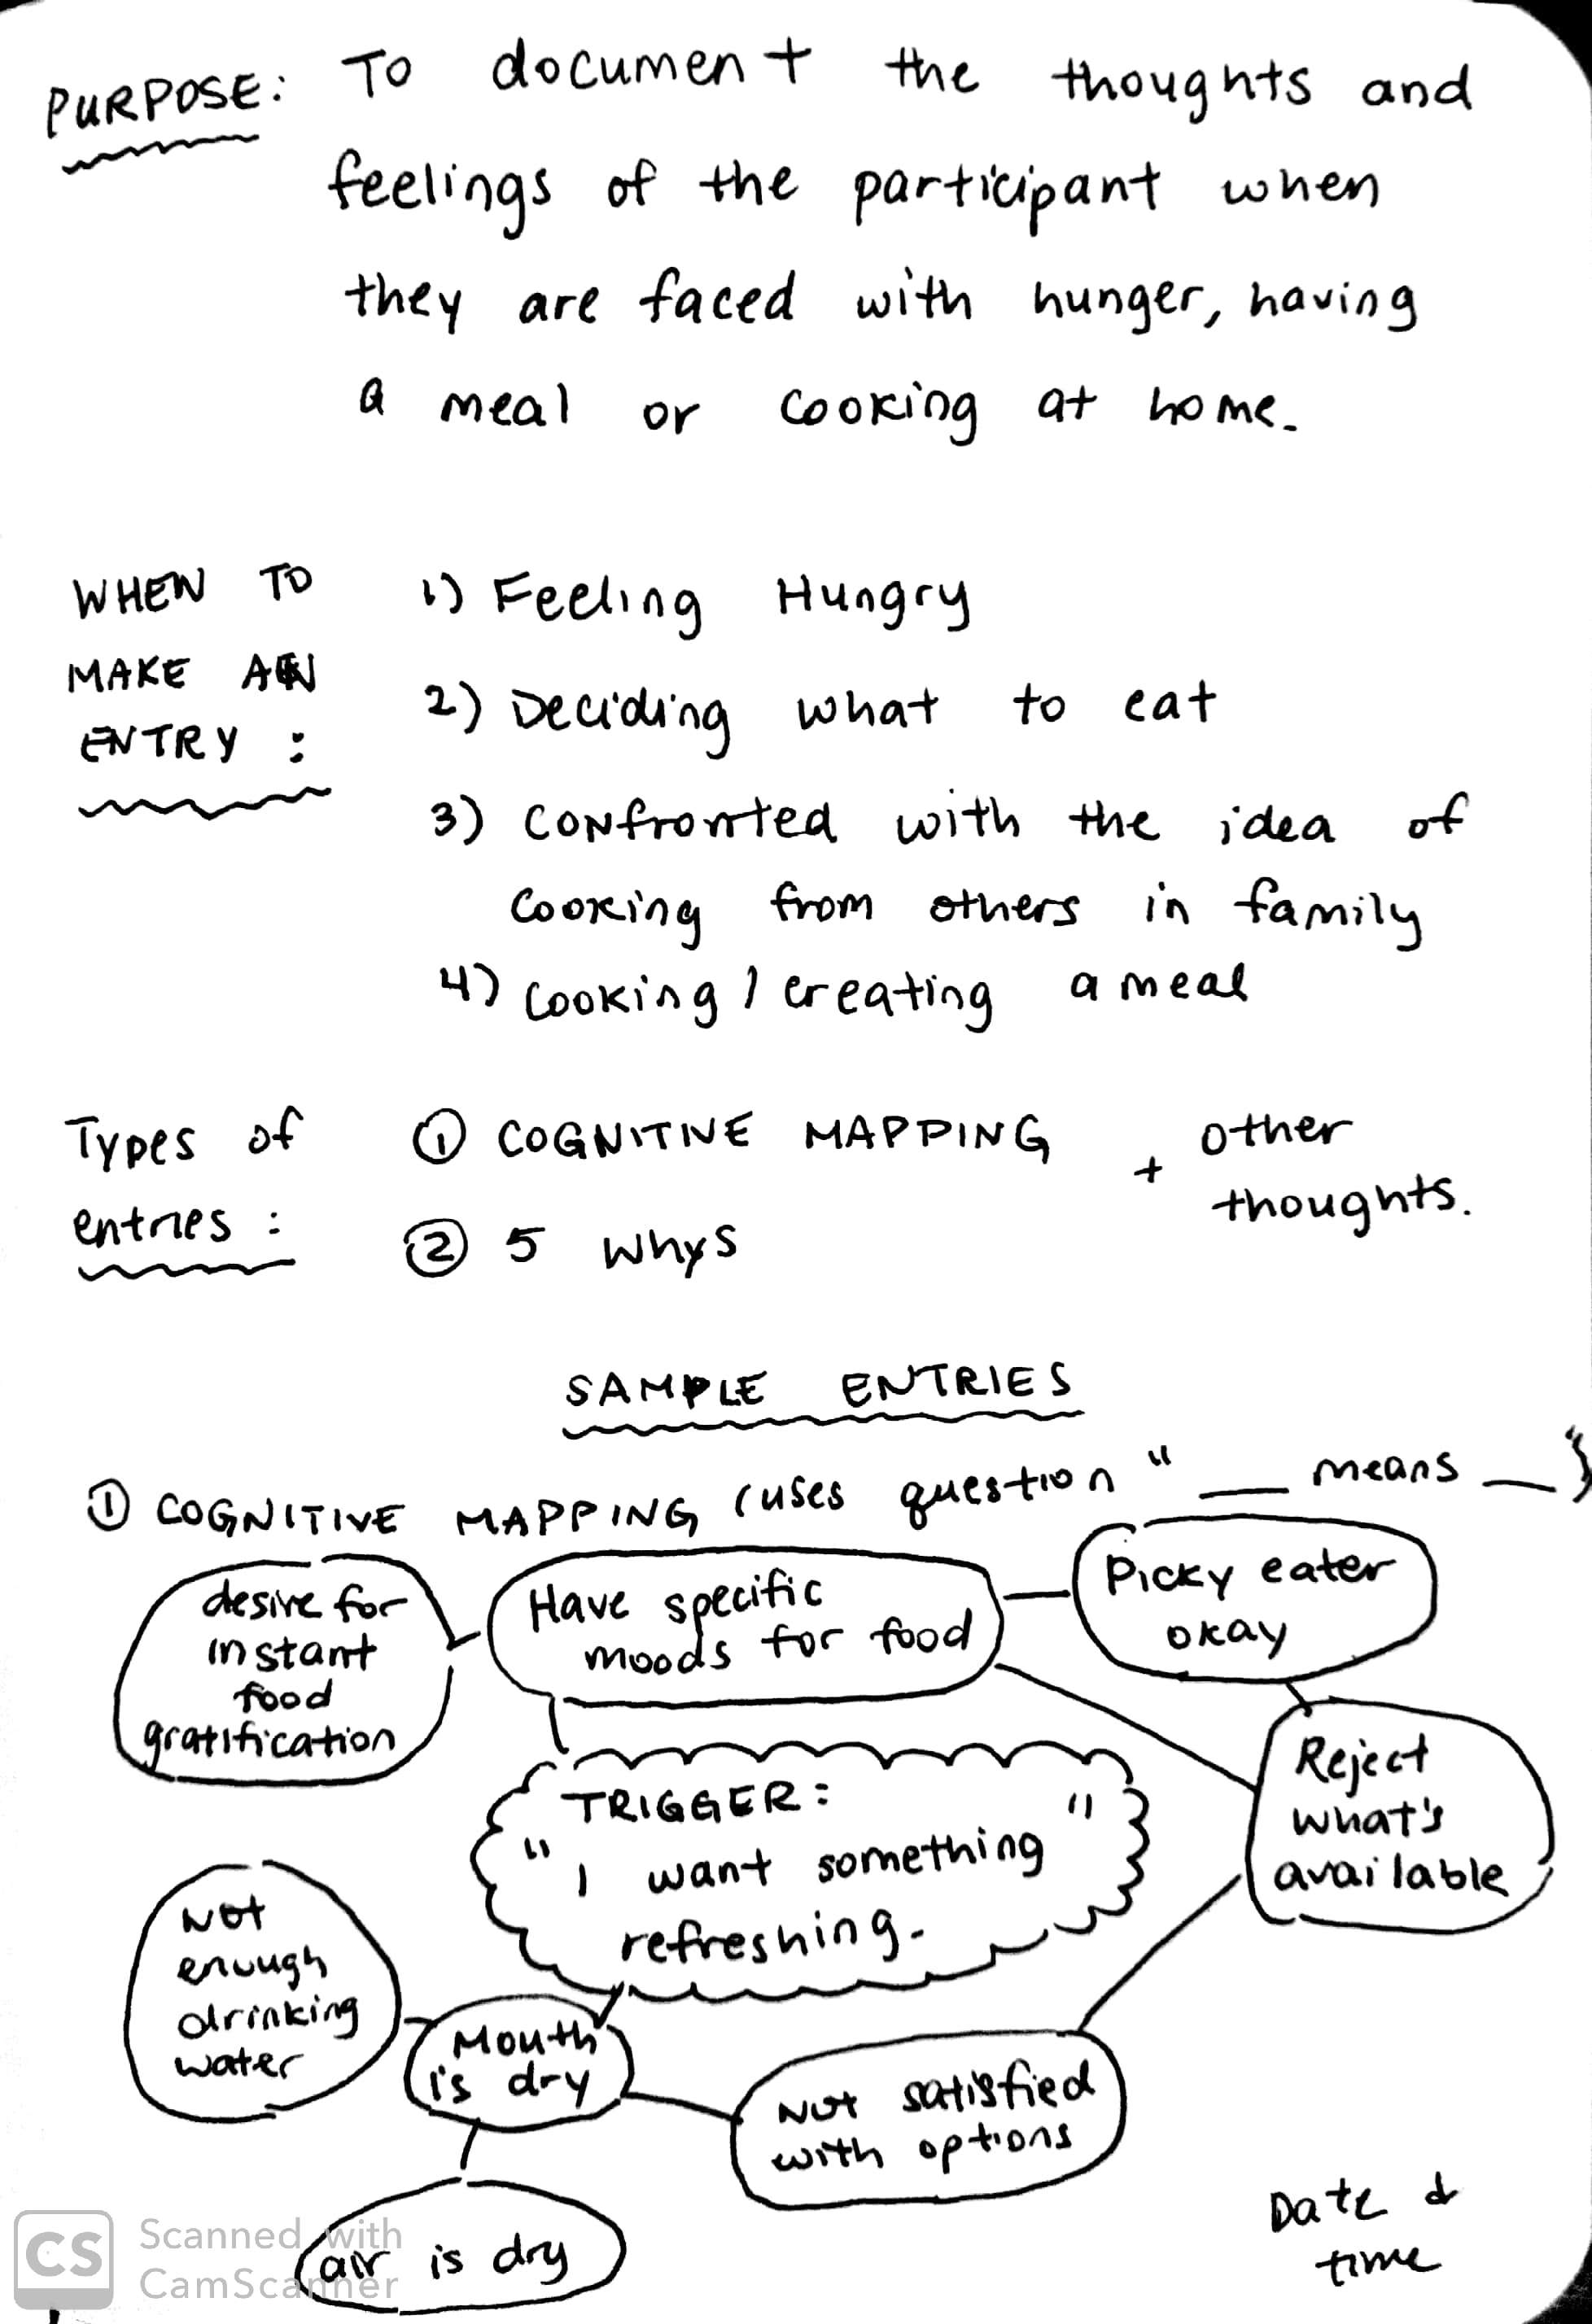 PURPOSE: To document the thoughts and
feelings of the participant when
they are faced with hunger, having
a meal or cooking at home.
WHEN TO
MAKE AN
ENTRY :
1) Feeling Hungry
2) Deciding what to eat
3) Confronted with the idea of
cooking from others in family
4) cooking / creating a meal
Types of
entries :
① COGNITIVE MAPPING
② 5 Whys
+ other
thoughts.
SAMPLE ENTRIES
① COGNITIVE MAPPING (uses question "__ means __")
desire for
instant
food
gratification
Have specific
moods for food
Picky eater
okay
Reject
what's
available
TRIGGER:
"I want something
refreshing."
Not
enough
drinking
water
Mouth
is dry
Not satisfied
with options
air is dry
Date &
time
CS
Scanned with
CamScanner